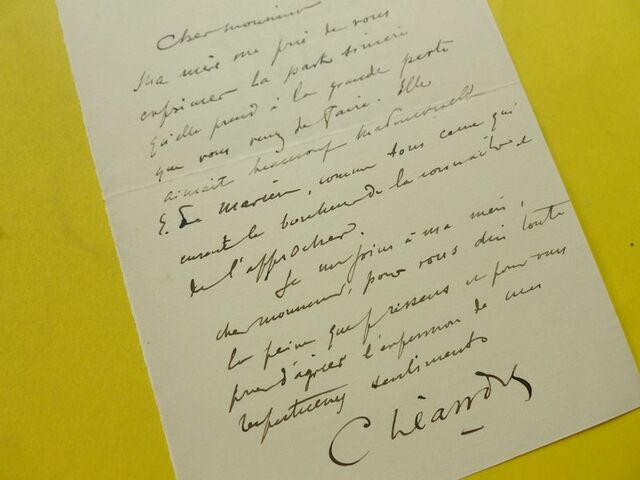 Cher monsieur
Ma mère me prie de vous
exprimer la part sincère
qu'elle prend à la grande perte
que vous venez de faire. Elle
aimait beaucoup Mademoiselle
E. de Marien, comme tous ceux qui
eurent le bonheur de la connaître et
de l'approcher.
Je me joins à ma mère,
cher monsieur, pour vous dire toute
la peine que je ressens et pour vous
prier d'agréer l'expression de mes
respectueux sentiments